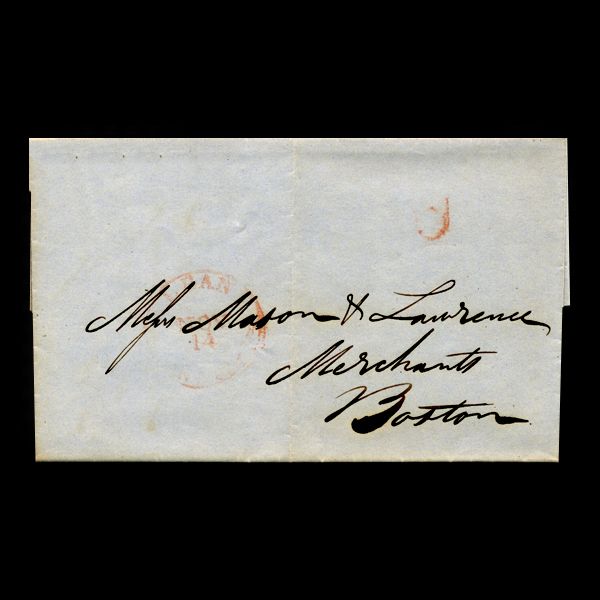 5
Messrs Mason & Lawrence
Merchants
Boston
14